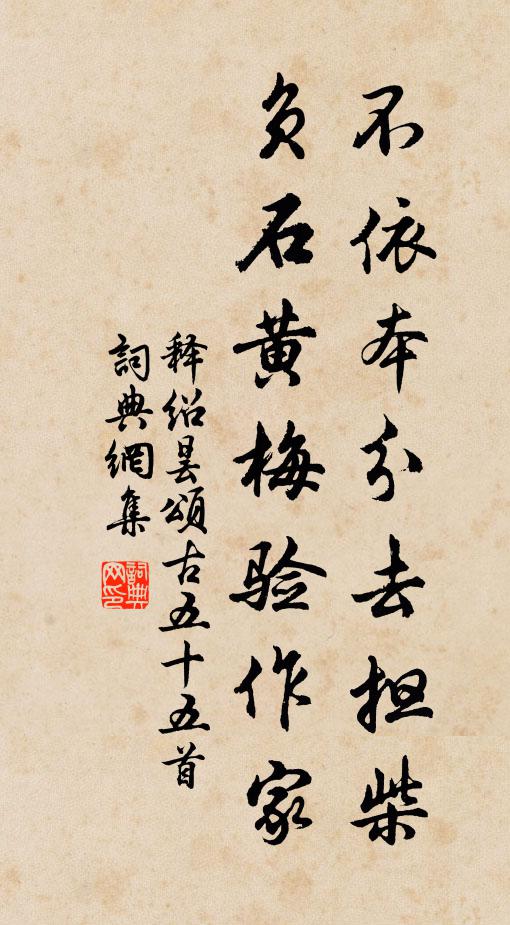 不依本分去担柴
负石黄梅验作家
释绍昙颂古五十五首
詞典網集
詞典网印